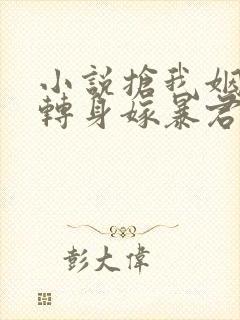 小説搶我姻
轉身嫁暴君
彭大偉